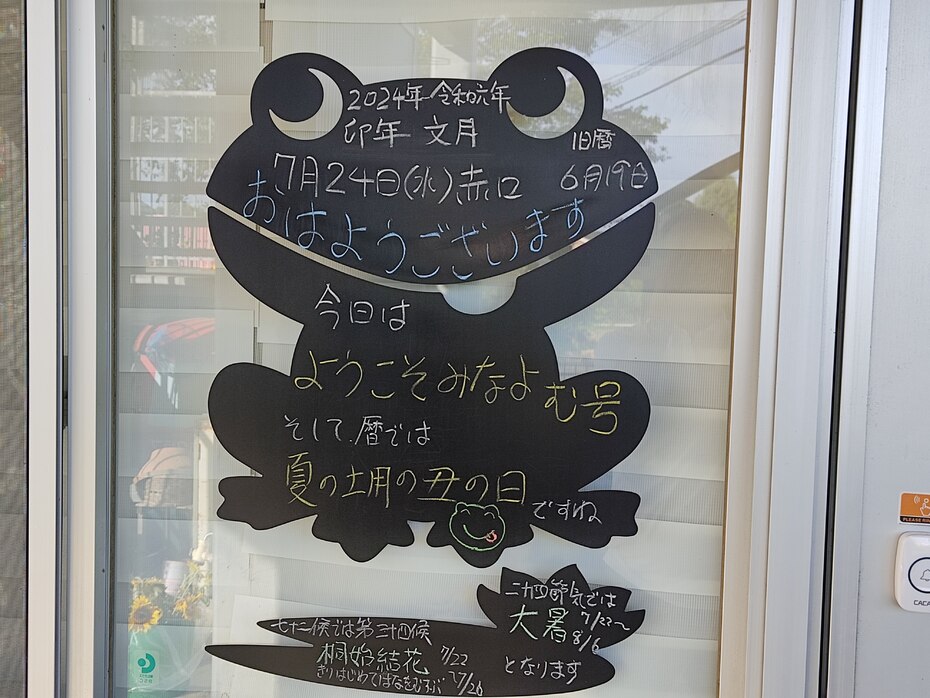 2024年 令和六年
卯年 文月
旧暦
7月24日(水)赤口
6月19日
おはようございます
今日は
ようこそみなよむ号
そして.暦では
夏の土用の丑の日
ですね
二十四節気では
大暑 7/22〜8/6
となります
七十二候では第三十四候
桐始結花 7/22
きりはじめてはなをむすぶ 7/26
PLEASE RING